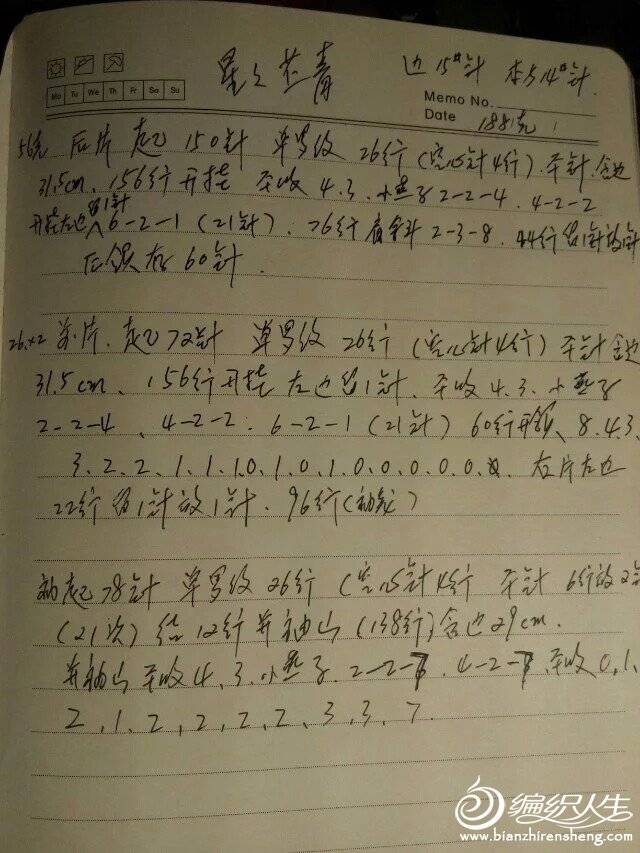 星之艺青 边15#针 本身14#针
Mo Tu We Th Fr Sa Su
Memo No.
Date 188克
56克 后片 起150针 单罗纹 26行(空心针4行). 平针 含边
31.5cm. 156行开挂 平收 4.3. 小燕子 2-2-4. 4-2-2
开挂左边留1针 6-2-1 (21针). 76行肩斜 2-3-8. 44行留1针放1针
后领存60针.
26.×2 前片. 起72针 单罗纹 26行 (空心针4行) 平针 含边
31.5cm. 156行开挂 左边留1针. 平收 4.3. 小燕子
2-2-4. 4-2-2. 6-2-1 (21针) 60行开领. 8.4.3.
3.2.2.1.1.1.0.1.0.1.0.0.0.0.0. 右片左边
22行留1针放1针. 96行
袖起78针 单罗纹 26行 (空心针4行 平针 6行放2针
(21次) 结12行开袖山 (138行)含边29cm.
开袖山 平收 4.3. 小燕子. 2-2- 4-2- 平收 0.1.
2.1.2.2.2.2.3.3.7.
编织人生
www.bianzhirensheng.com